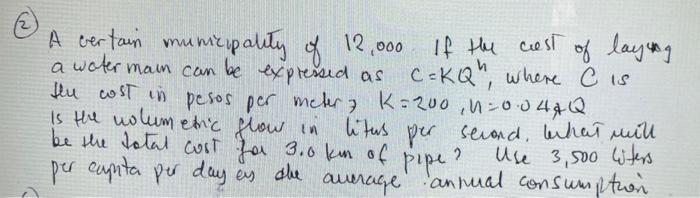 2
A certain municipality of 12,000. If the cost of laying
a water main can be expressed as C=KQⁿ, where C is
the cost in pesos per meter, K=200, n=0.04 & Q
Is the volumetric flow in liters per second, what will
be the total cost for 3.0 km of pipe? Use 3,500 liters
per capita per day as the average annual consumption